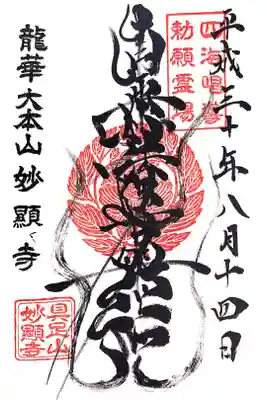 平成三十年八月十四日
四海唱導
勅願霊場
龍華 大本山 妙顯寺
具足山
妙顯寺